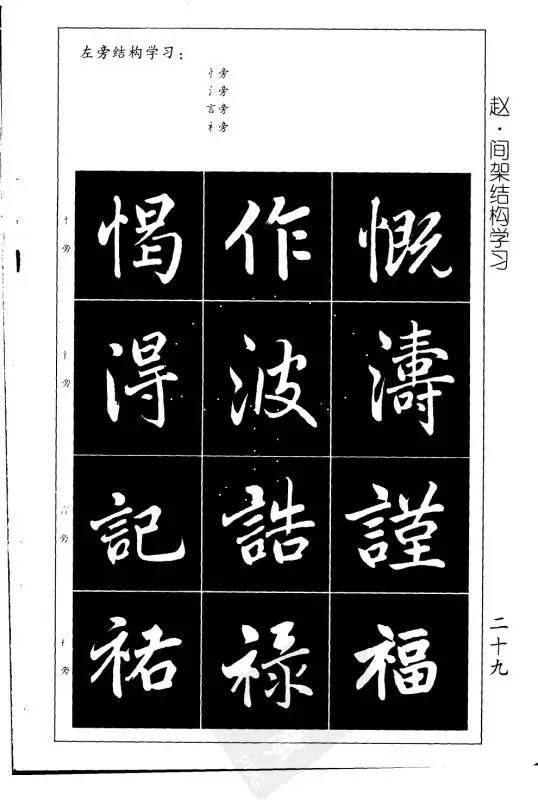 左旁结构学习：
忄旁
氵旁
言旁
礻旁
赵·间架结构学习
忄旁
愒 作 慨
旁
淂 波 濤
言旁
記 誥 謹
旁
祐 禄 福
二十九